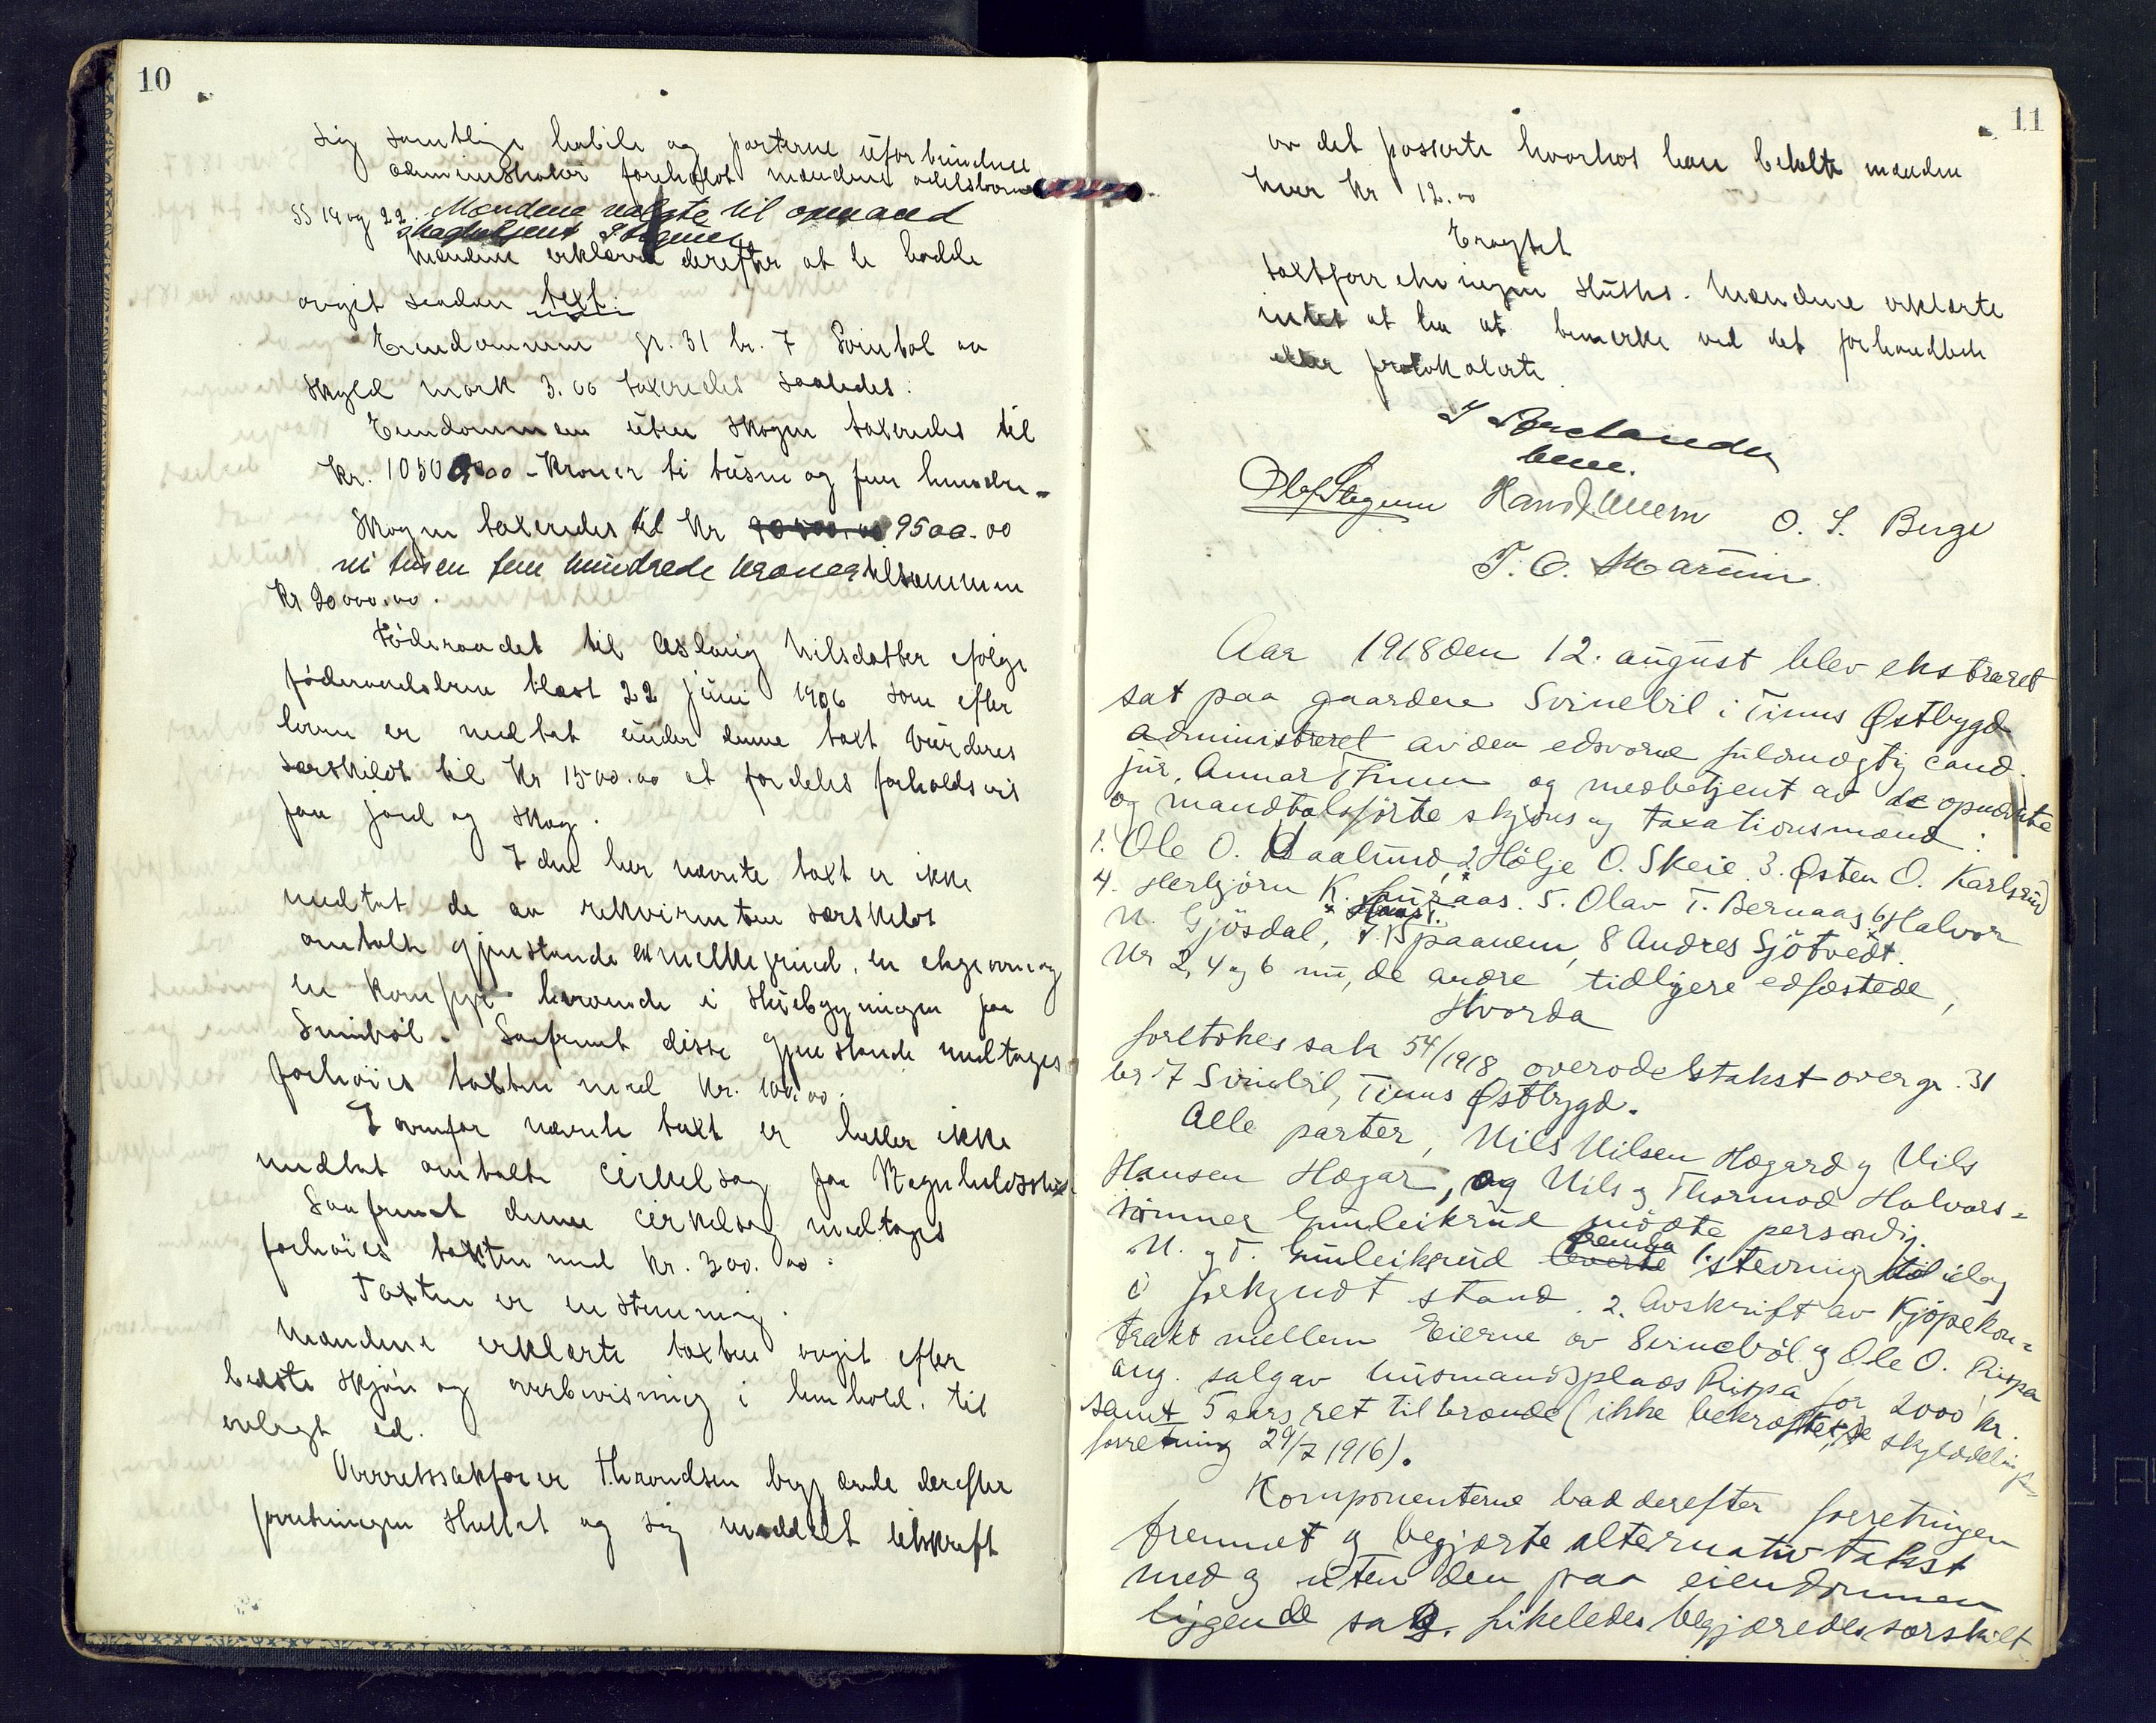 10
sig samtlige habile og parterne uforbundne
administrator foreholdt mændene odelslovens
§§ 19 og 22. Mændene valgte til opmand
Mændene erklærte derefter at de hadde
avgit saadan taxt:
Eiendommen gr. 31 br. 7 Svinbøl av
skyld mark 3.00 taxeredes saaledes:
Eiendommen uten skogen taxeredes til
Kr. 10500.00 - Kroner ti tusen og fem hundre -
Skogen taxeredes til Kr 9500.00
ni tusen fem hundrede kroner tilsammen
Kr 20000.00.
Föderaadet til Aslaug Nilsdatter ifølge
föderaadsbrev tlæst 22 juni 1906 som efter
loven er medtat under denne taxt vurderes
særskildt til Kr 1500.00 at fordeles forholdsvis
paa jord og skog.
I den her nævnte taxt er ikke
medtat de av rekvirenten særskildt
omtalte gjenstande en mellegrind, en
en komfyr beroende i husbygningen paa
Svinbøl. Saafremt disse gjenstande medtages
forhöies taxten med Kr. 100.00.
I ovenfor nævnte taxt er heller ikke
medtat omtalte cirkelsag paa
Saafremt denne cirkelsag medtages
forhöies taxten med Kr. 300.00.
Taxten er enstemmig.
Mændene erklærte taxten avgit efter
bedste skjön og overbevisning i henhold til
avlagt ed.
Overretssakförer Throndsen begjærede derefter
forretningen sluttet og sig meddelt utskrift
11
av det passerte hvorhos han betalte mændene
hver Kr 12.00
Eragtet
taxtforretningen sluttes. Mændene erklærte
intet at ha at bemerke ved det forhandlede
eller protokolerte.
O. S. Berge
T. O. Marum
Aar 1918 den 12. august blev ekstraret
sat paa gaarden Svinebøl i Tinns Østbygd
administreret av den edsvorne fuldmægtig cand.
jur. Annar Thinn og medbetjent av de opnævnte
og mandtalsførte skjøns og taxationsmænd:
1. Ole O. Haalund, 2 Hölje O. Skeie. 3. Østen O. Karlsrud
4. Herbjörn K. Juuraas. 5. Olav T. Bernaas, 6 Halvor
N. Gjösdal, 7. Spaanem, 8 Andres Sjötvedt.
Nr 2, 4 og 6 nu, de andre tidligere edfæstede,
Hvorda
foretokes sak 54/1918 overodelstakst over gr. 31
br. 7 Svinebøl, Tinns Østbygd.
Alle parter, Nils Nilsen Hægard og Nils
Hansen Hægar, og Nils og Thormod Halvors=
sönner Gunleiksrud mödte personlig.
N. og T. Gunleiksrud leverte fremla 1. stevning til idag
i forkyndt stand. 2. Avskrift av Kjöpekon=
trakt mellem Eierne av Svineböl og Ole O. Rispa
ang. salg av husmandsplads Rispa for 2000 kr.
samt 5 aars ret til brænde (ikke bekræftet) skylddelings
forretning 29/7 1916).
Komponenterne bad derefter forretningen
fremmet og begjærte alternativ takst
med og uten den paa eiendommen
liggende sag. likeledes begjæredes særskilt